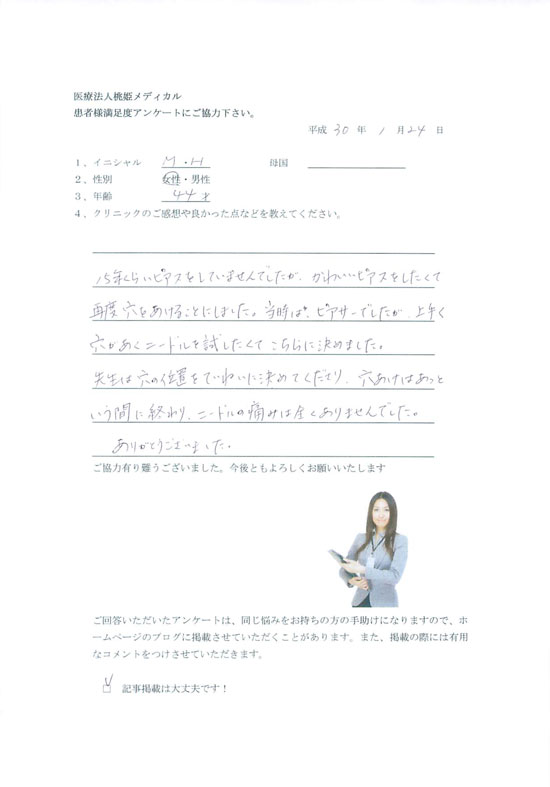 医療法人桃姫メディカル
患者様満足度アンケートにご協力下さい。
平成 30 年 1 月 24 日
1、イニシャル M・H 母国
2、性別 女性・男性
3、年齢 44才
4、クリニックのご感想や良かった点などを教えてください。
15年くらいピアスをしていませんでしたが、かわいいピアスをしたくて
再度穴をあけることにしました。当時は、ピアサーでしたが、上手く
穴があくニードルを試したくてこちらに決めました。
先生は穴の位置をていねいに決めてくださり、穴あけはあっと
いう間に終わり、ニードルの痛みは全くありませんでした。
ありがとうございました。
ご協力有り難うございました。今後ともよろしくお願いいたします
ご回答いただいたアンケートは、同じ悩みをお持ちの方の手助けになりますので、ホ
ームページのブログに掲載させていただくことがあります。また、掲載の際には有用
なコメントをつけさせていただきます。
記事掲載は大丈夫です！